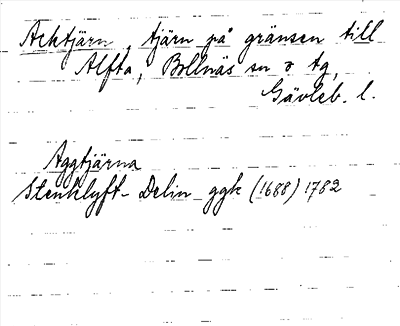 Acktjärn, tjärn på gränsen till
Alfta, Bollnäs sn o tg,
Gävleb. l.
Aggtjärna
Stenklyft- Delin ggk (1688) 1782